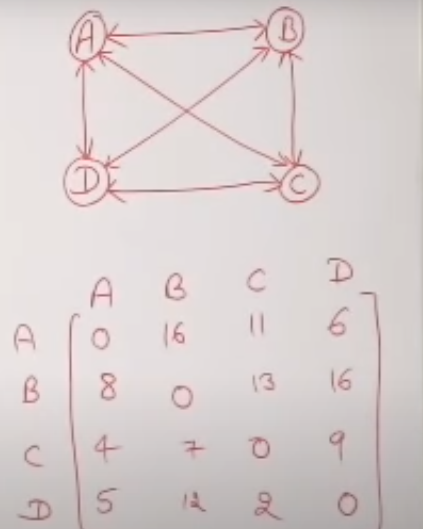 A B
D C
A B C D
A 0 16 11 6
B 8 0 13 16
C 4 7 0 9
D 5 12 2 0